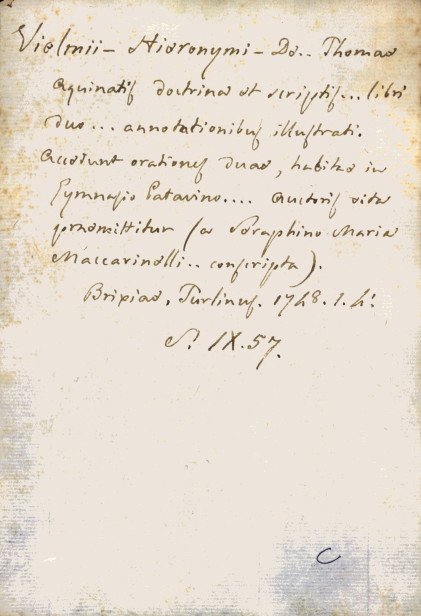 Vielmii - Hieronymi - De.. Thomae
Aquinatis doctrina et scriptis... libri
duo... annotationibus illustrati.
Accedunt orationes duae, habitae in
Gymnasio Patavino.... Auctoris vita
praemittitur (a Seraphino Maria
Maccarinelli.. conscripta).
Brixiae, Turlinus. 1748. 1. 4:
S. IX. 57.
C